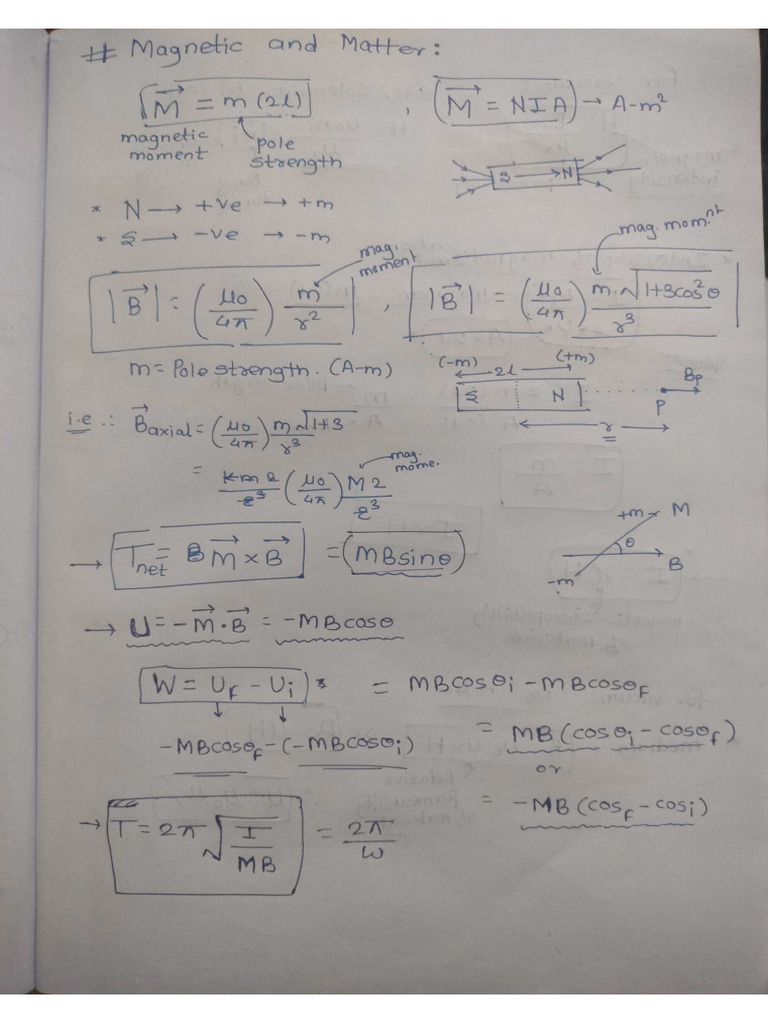 # Magnetic and Matter:
M⃗ = m(2l) , M⃗ = NIA → A-m²
magnetic moment
pole strength
S → N
* N → +ve → +m
* S → -ve → -m
mag. moment
mag. mom.nt
|B⃗| = (μ0/4π) m/r² , |B⃗| = (μ0/4π) m√1+3cos²θ/r³
m = Pole strength. (A-m)
(-m) 2l (+m)
S N P Bp
r
i.e.: B⃗axial = (μ0/4π) m√1+3/r³
= (μ0/4π) M2/r³
mag. mome.
→ Tnet = M⃗ × B⃗ = MBsinθ
+m M
θ
B
-m
→ U = -M⃗·B⃗ = -MBcosθ
W = Uf - Ui * = MBcosθi - MBcosθf
-MBcosθf - (-MBcosθi) = MB(cosθi - cosθf)
or
= -MB(cosf - cosi)
→ T = 2π√I/MB = 2π/ω